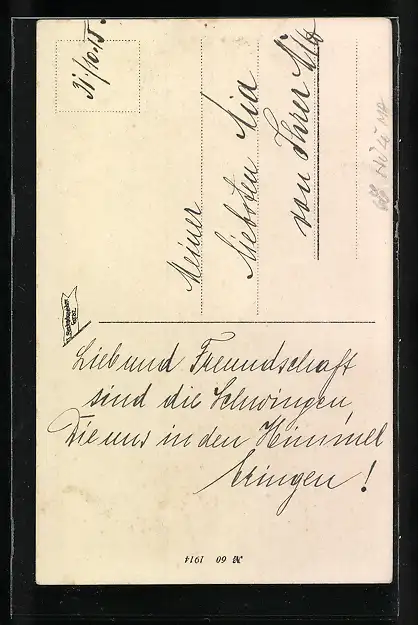 31/10.15.
Meiner
liebsten Mia
von Ihrer
Lieb und Freundschaft
sind die Schwingen,
Die uns in den Himmel
bringen!
No 60 1914